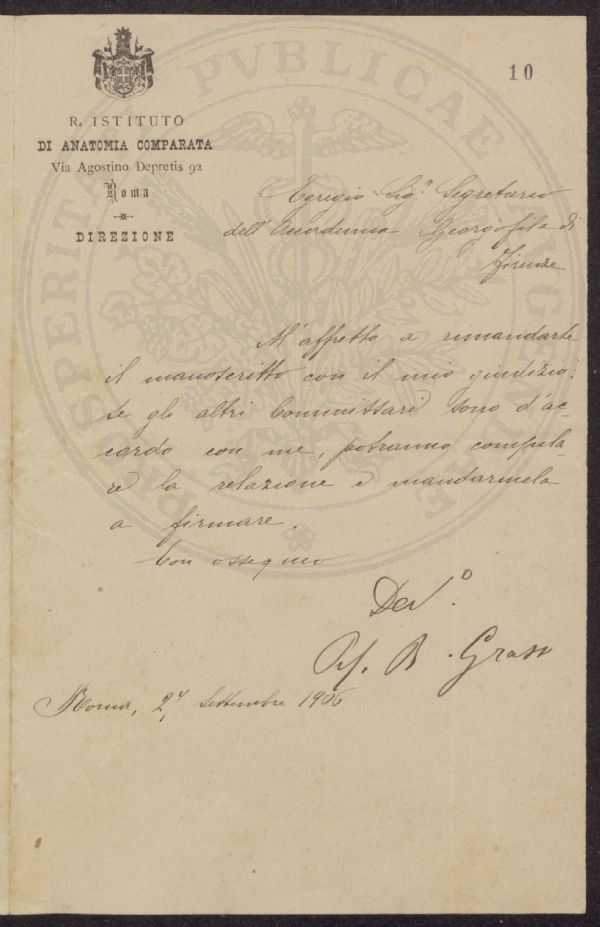 10
R. ISTITUTO
DI ANATOMIA COMPARATA
Via Agostino Depretis 92
Roma
DIREZIONE
Egregio Sig.r Segretario
dell'Accademia Georgofila di
Firenze
M'affretto a rimandarle
il manoscritto con il mio giudizio:
se gli altri Commissari sono d'ac-
cordo con me, potranno compila-
re la relazione e mandarmela
a firmare.
Con ossequio
Dev.o
Prf. B. Grassi
Roma, Settembre 1906
PROSPERITATI PVBLICAE